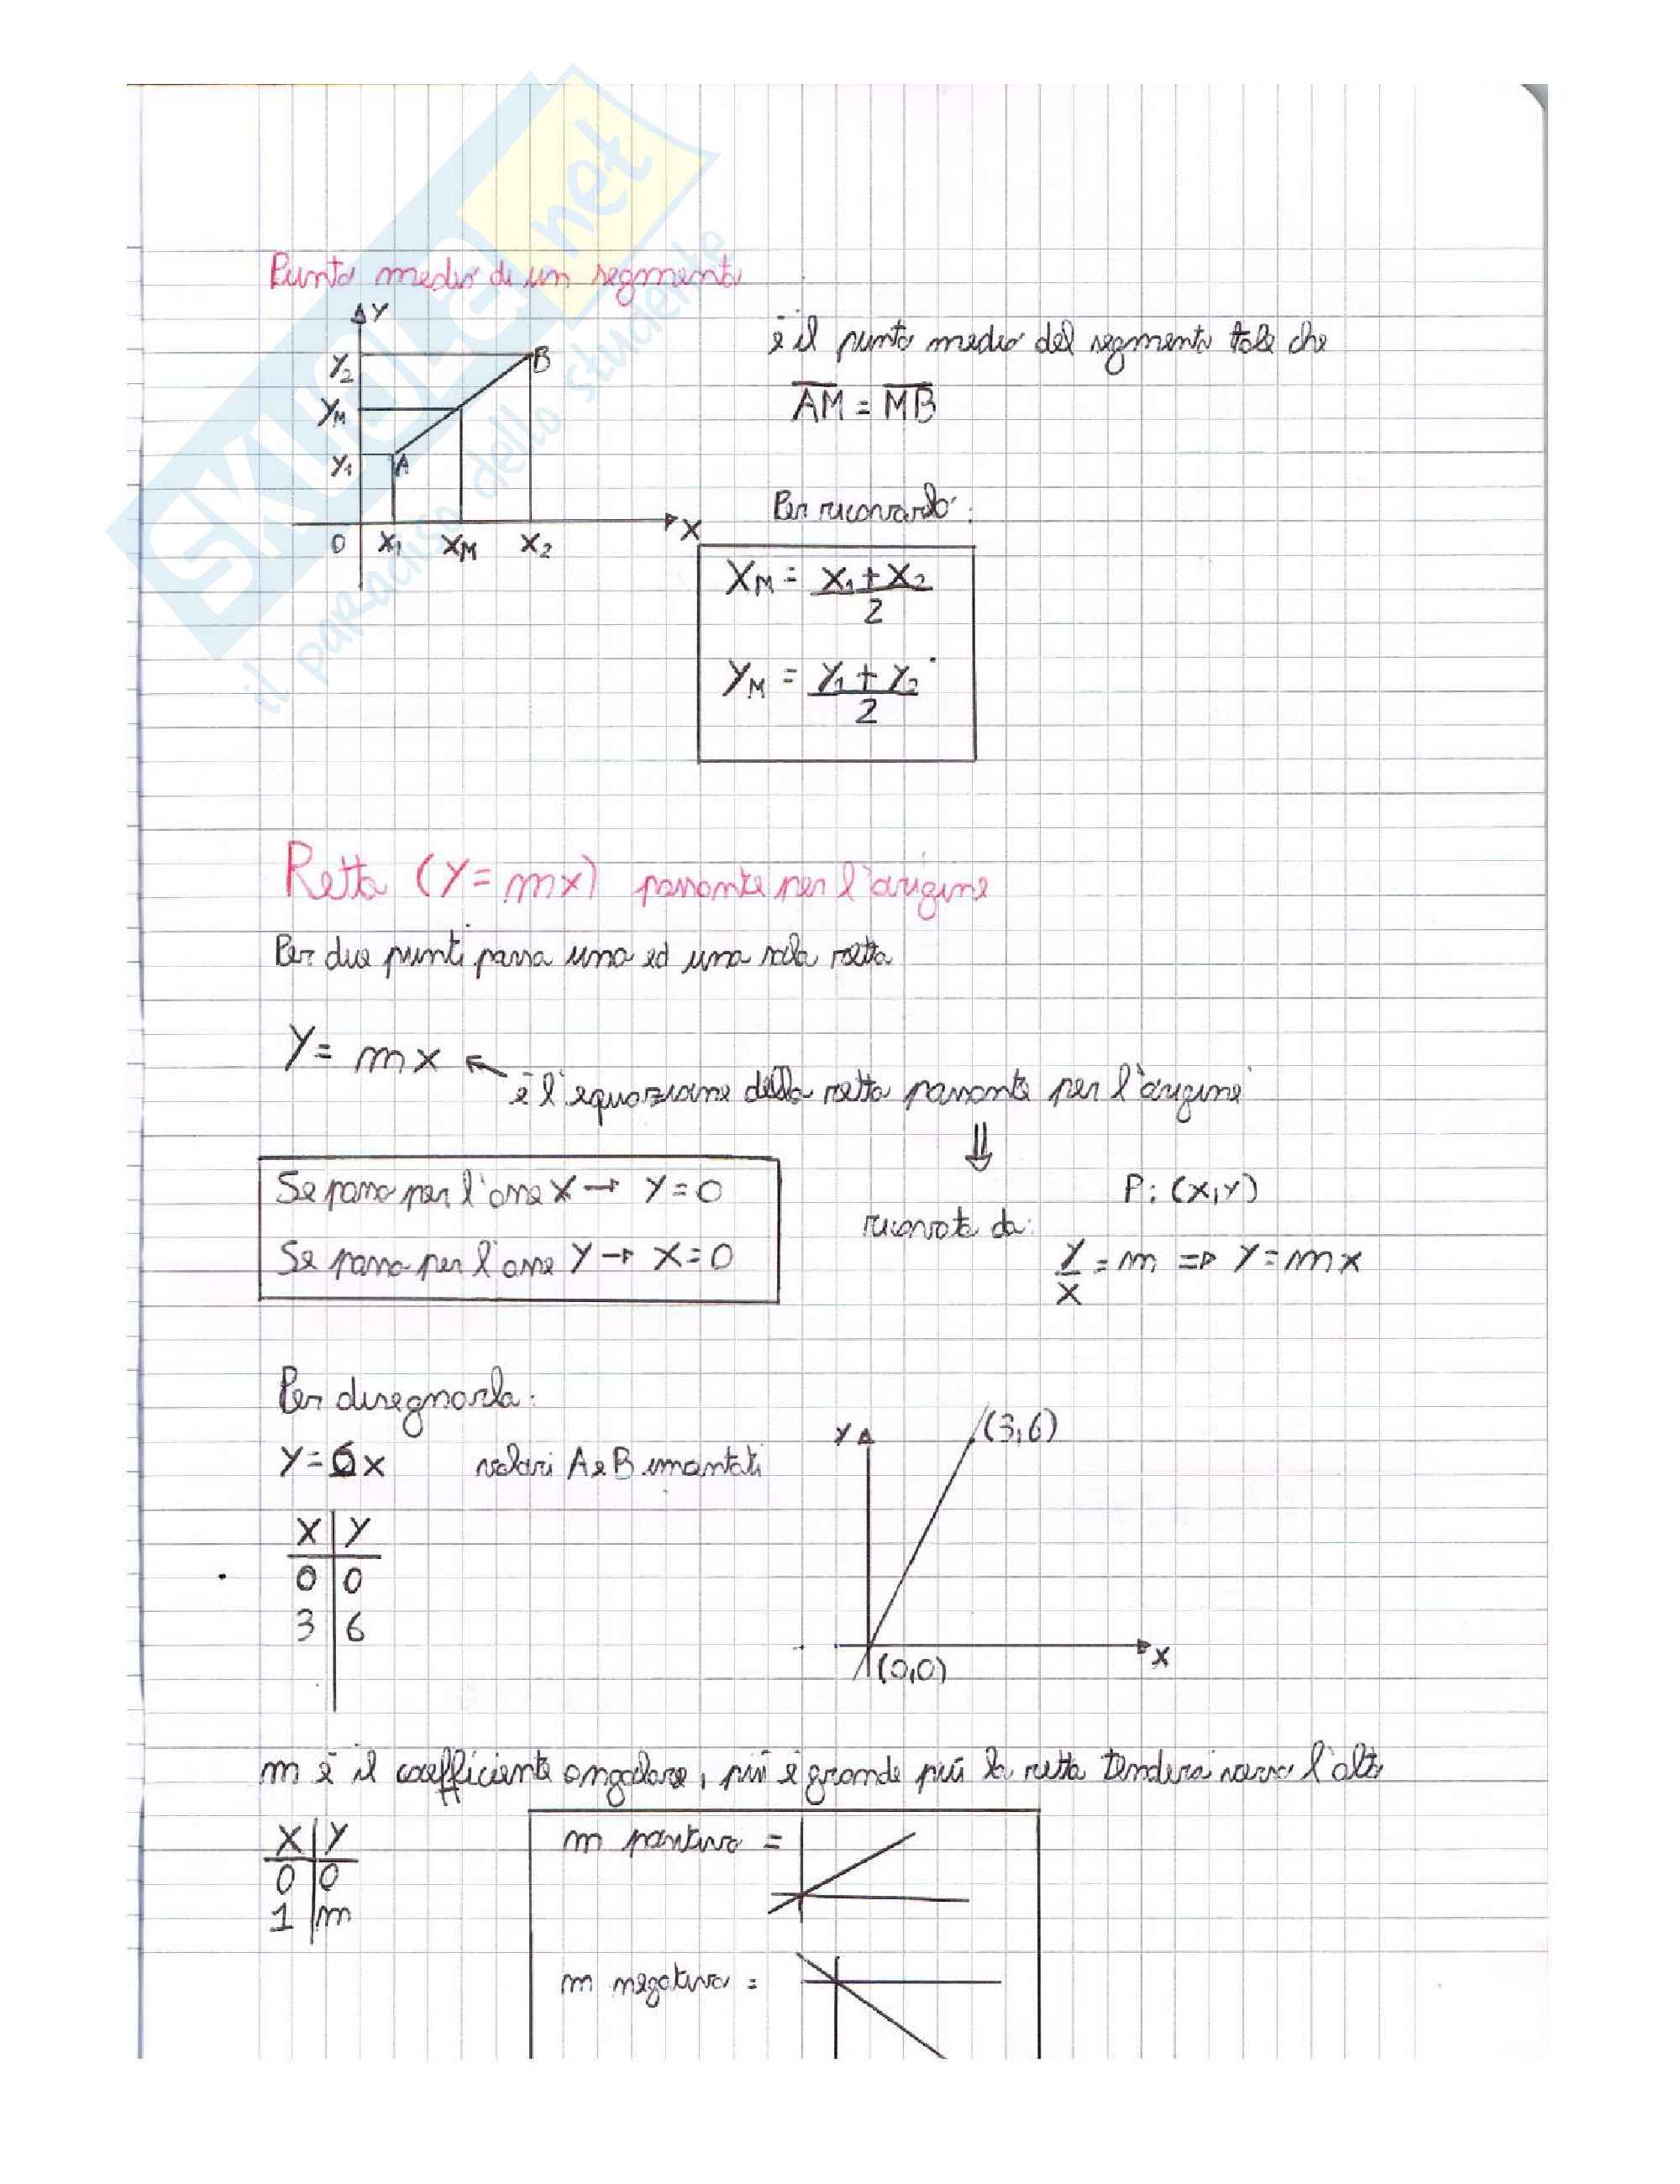 SKUOLA.net
il paradiso dello studente
Punto medio di un segmento
Y
Y2
B
YM
Y1
A
X
0 X1 XM X2
è il punto medio del segmento tale che
AM = MB
Per ricavarlo:
XM = X1 + X2
2
YM = Y1 + Y2
2
Retta (Y = mx) passante per l'origine
Per due punti passa una ed una sola retta
Y = mx
è l'equazione della retta passante per l'origine
⇓
Se passa per l'asse X → Y = 0
Se passa per l'asse Y → X = 0
ricavata da:
P: (X,Y)
Y/X = m ⇒ Y = mx
Per disegnarla:
Y = 6x valori A e B inventati
X | Y
0 | 0
3 | 6
Y
(3,6)
X
(0,0)
m è il coefficiente angolare, più è grande più la retta tenderà verso l'alto
X | Y
0 | 0
1 | m
m positivo =
m negativo =